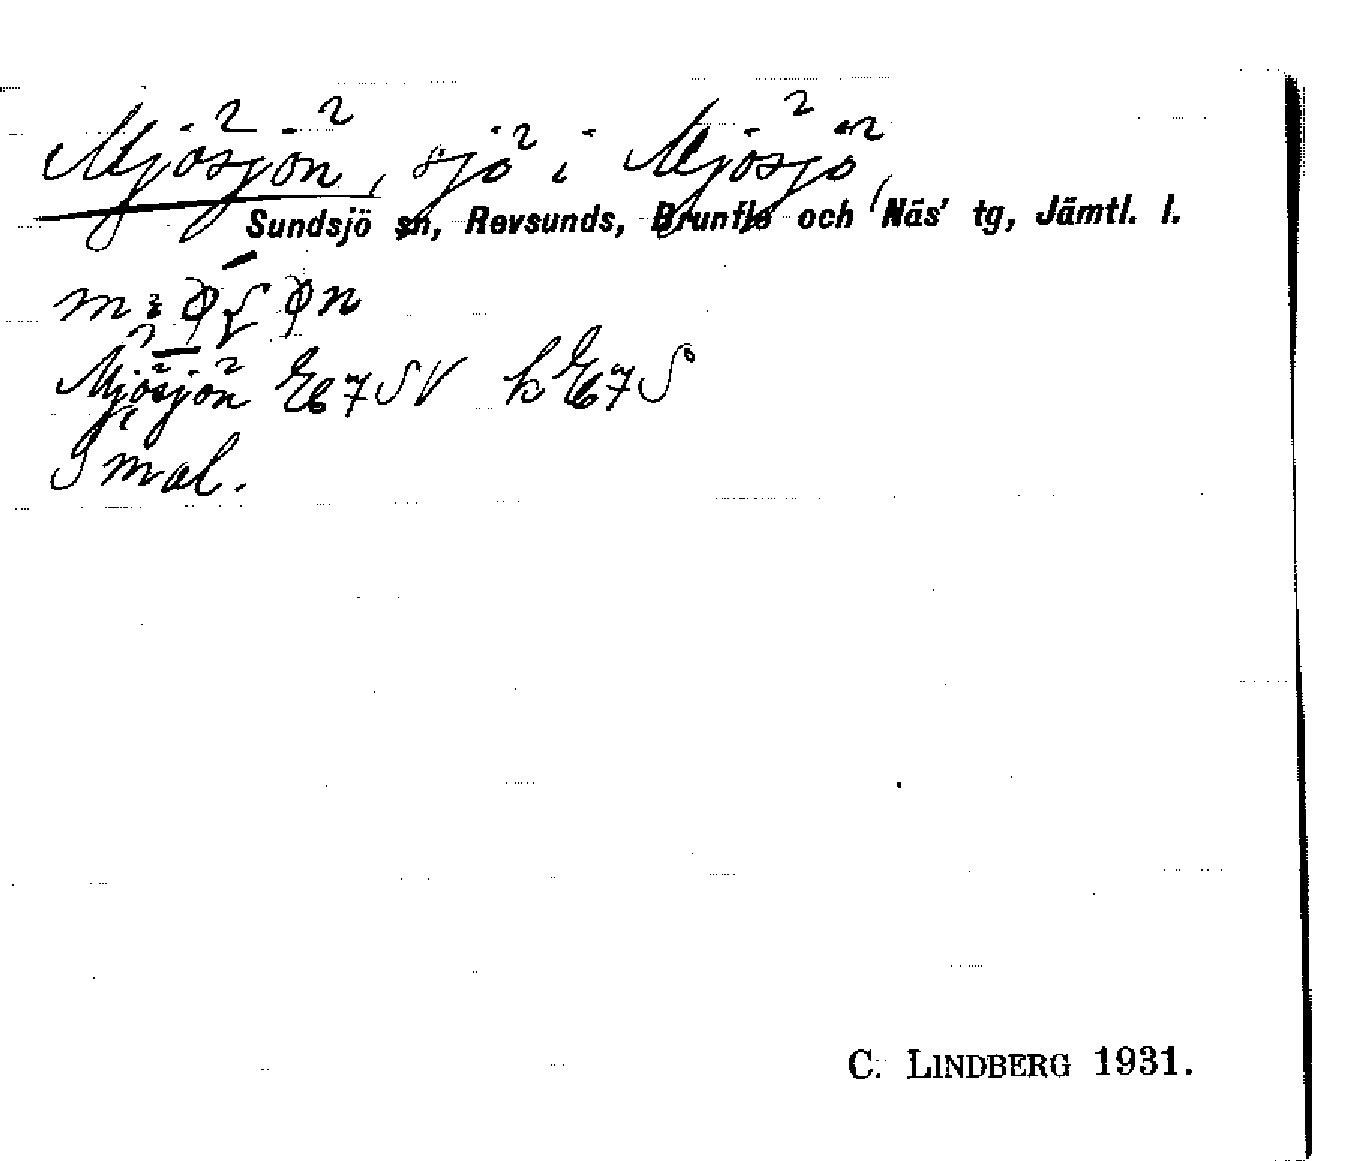 Mjösjön, sjö i Mjösjö,
Sundsjö sn, Revsunds, Brunflo och Näs' tg, Jämtl. l.
Mjösjön
mal.
C. LINDBERG 1931.